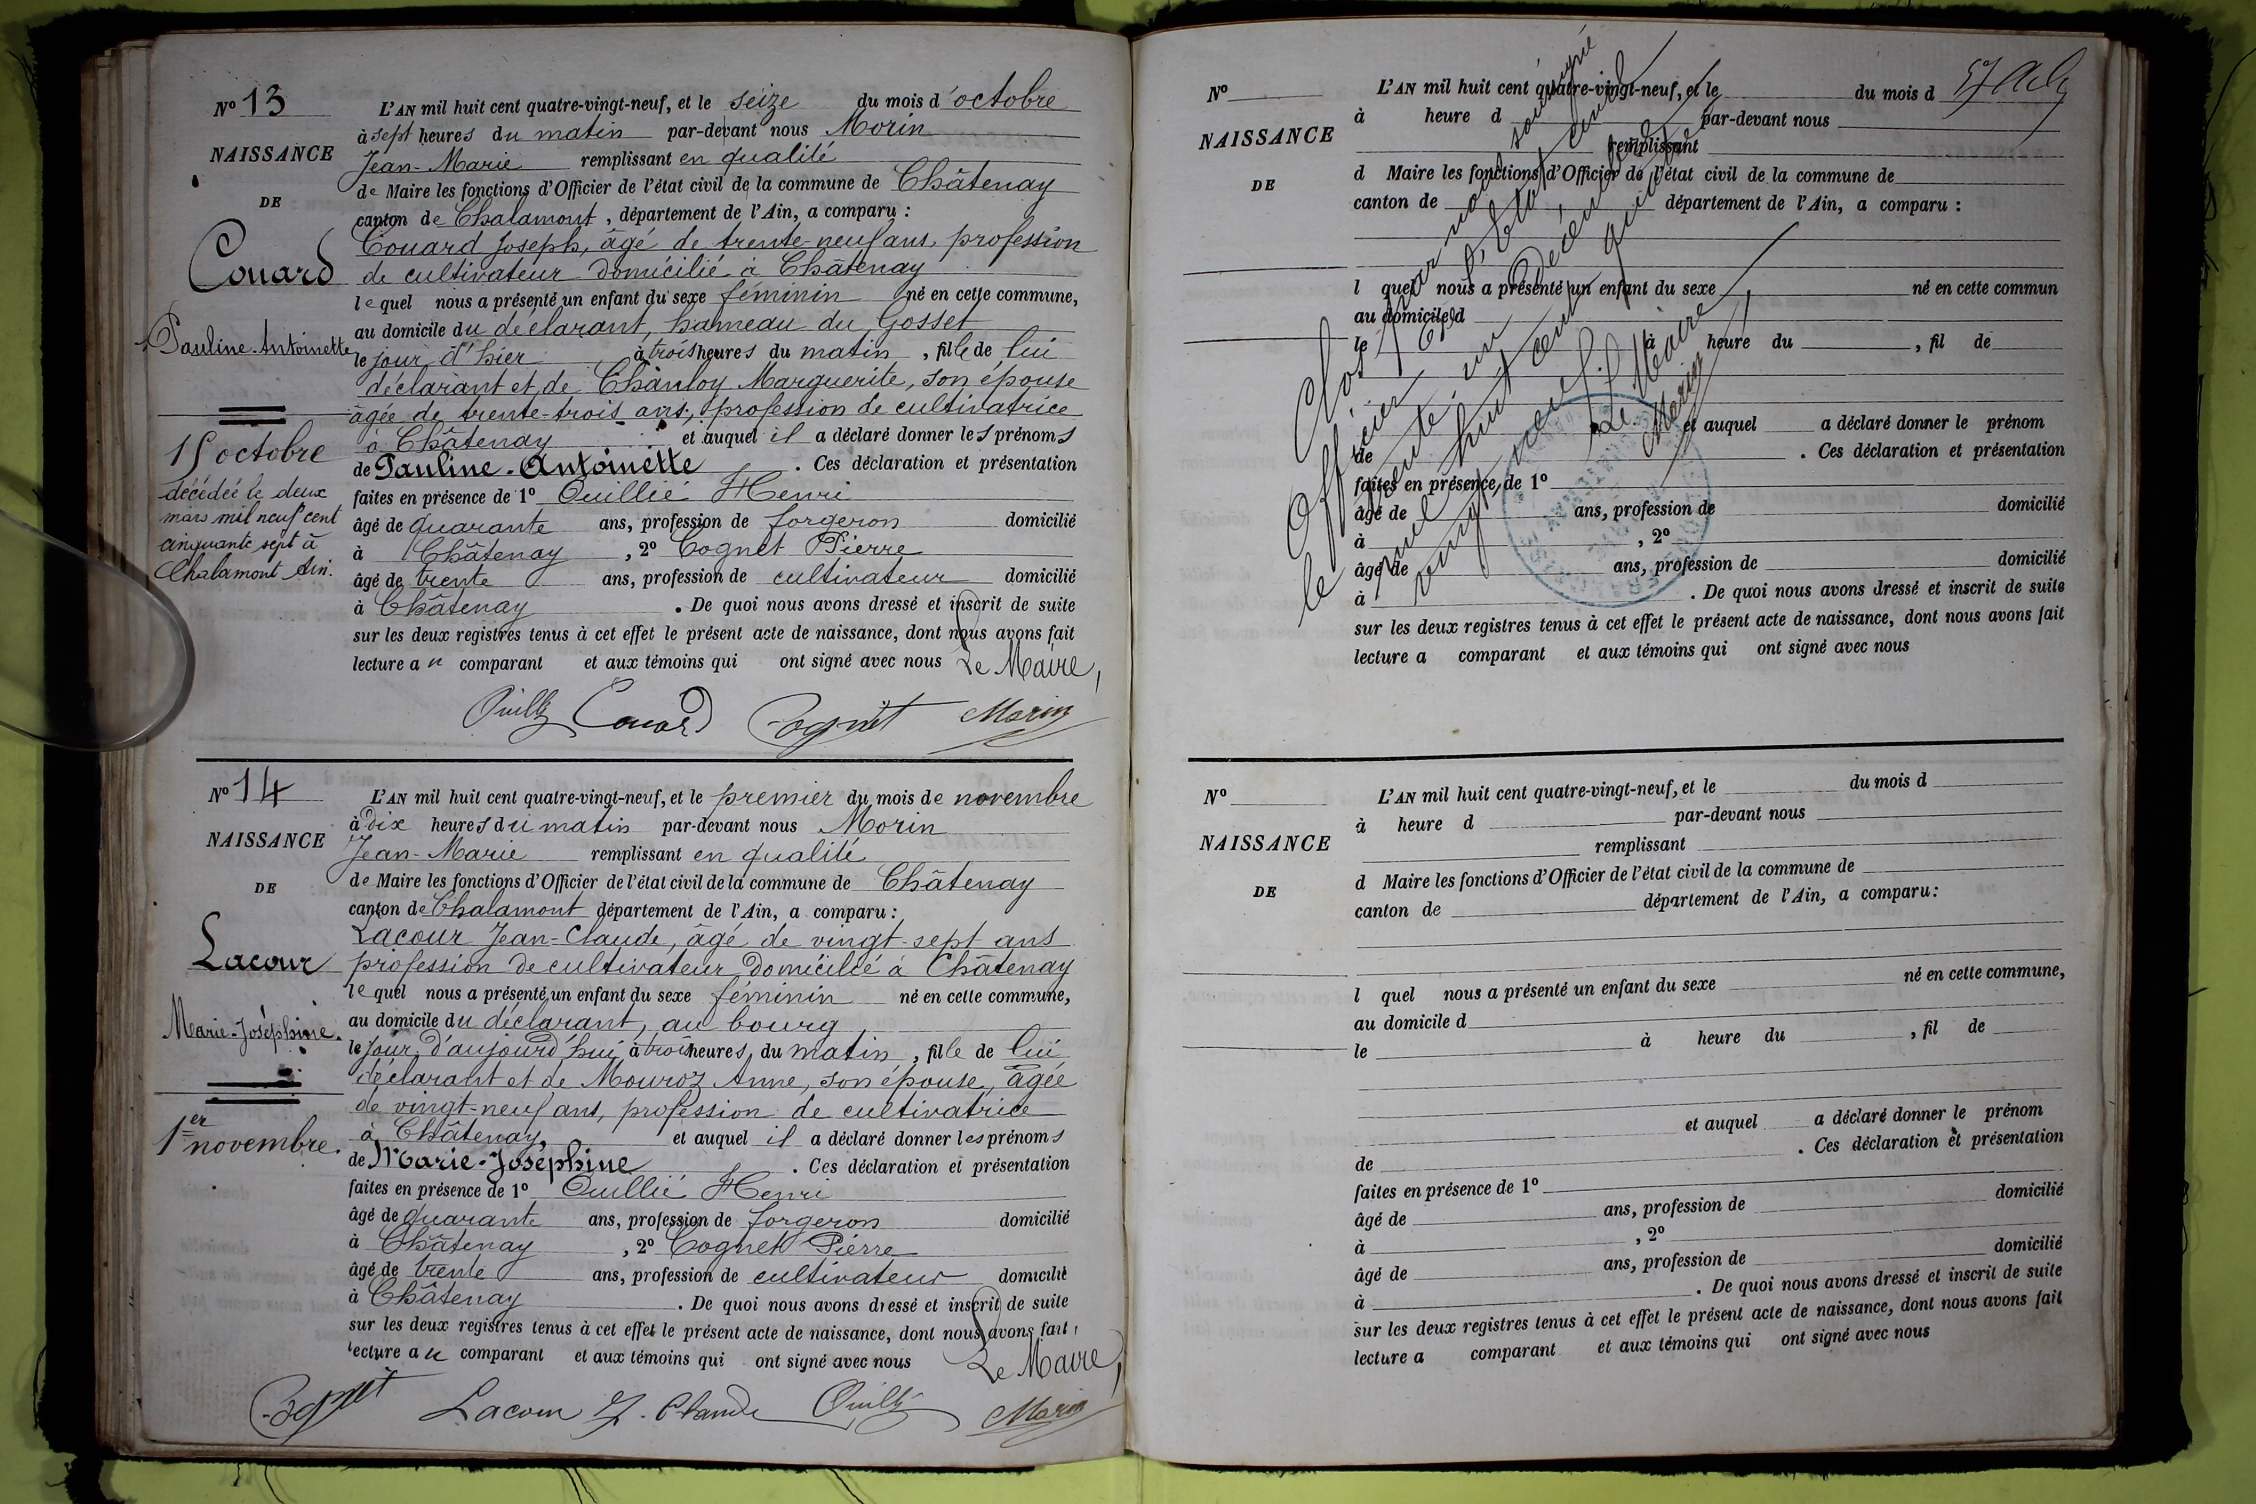 Nº 13
NAISSANCE
DE
Couard
Pauline-Antoinette
15 octobre
décédée le deux
mars mil neuf cent
cinquante sept à
Chalamont Ain.
L'AN mil huit cent quatre-vingt-neuf, et le seize du mois d'octobre
à sept heures du matin par-devant nous Morin
Jean-Marie remplissant en qualité
de Maire les fonctions d'Officier de l'état civil de la commune de Châtenay
canton de Chalamont, département de l'Ain, a comparu :
Couard Joseph, âgé de trente-neuf ans, profession
de cultivateur domicilié à Châtenay
lequel nous a présenté un enfant du sexe féminin né en cette commune,
au domicile du déclarant, hameau du Gosset
le jour d'hier à trois heures du matin, fille de lui
déclarant et de Chanloy Marguerite, son épouse
âgée de trente-trois ans, profession de cultivatrice
à Châtenay et auquel il a déclaré donner les prénoms
de Pauline-Antoinette. Ces déclaration et présentation
faites en présence de 1º Quillié Henri
âgé de quarante ans, profession de forgeron domicilié
à Châtenay, 2º Cognet Pierre
âgé de trente ans, profession de cultivateur domicilié
à Châtenay. De quoi nous avons dressé et inscrit de suite
sur les deux registres tenus à cet effet le présent acte de naissance, dont nous avons fait
lecture au comparant et aux témoins qui ont signé avec nous Le Maire,
Quillié Couard Cognet Morin
Nº 14
NAISSANCE
DE
Lacour
Marie-Joséphine.
1er novembre.
L'AN mil huit cent quatre-vingt-neuf, et le premier du mois de novembre
à dix heures du matin par-devant nous Morin
Jean-Marie remplissant en qualité
de Maire les fonctions d'Officier de l'état civil de la commune de Châtenay
canton de Chalamont département de l'Ain, a comparu :
Lacour Jean-Claude, âgé de vingt-sept ans
profession de cultivateur domicilié à Châtenay
lequel nous a présenté un enfant du sexe féminin né en cette commune,
au domicile du déclarant, au bourg
le jour d'aujourd'hui à trois heures du matin, fille de lui
déclarant et de Mouroz Anne, son épouse, âgée
de vingt-neuf ans, profession de cultivatrice
à Châtenay, et auquel il a déclaré donner les prénoms
de Marie-Joséphine. Ces déclaration et présentation
faites en présence de 1º Quillié Henri
âgé de quarante ans, profession de forgeron domicilié
à Châtenay, 2º Cognet Pierre
âgé de trente ans, profession de cultivateur domicilié
à Châtenay. De quoi nous avons dressé et inscrit de suite
sur les deux registres tenus à cet effet le présent acte de naissance, dont nous avons fait
lecture au comparant et aux témoins qui ont signé avec nous Le Maire,
Cognet Lacour J. Claude Quillié Morin
Nº
NAISSANCE
DE
L'AN mil huit cent quatre-vingt-neuf, et le du mois d
à heure d par-devant nous
remplissant
d Maire les fonctions d'Officier de l'état civil de la commune de
canton de département de l'Ain, a comparu :
l quel nous a présenté un enfant du sexe né en cette commun
au domicile d
le à heure du , fil de
et auquel a déclaré donner le prénom
de . Ces déclaration et présentation
faites en présence, de 1º
âgé de ans, profession de domicilié
à , 2º
âgé de ans, profession de domicilié
à . De quoi nous avons dressé et inscrit de suite
sur les deux registres tenus à cet effet le présent acte de naissance, dont nous avons fait
lecture a comparant et aux témoins qui ont signé avec nous
Clos par nous soussigné
Officier de l'état civil
le trente un décembre
mil huit cent quatre
vingt neuf.
Le Maire,
Morin
Nº
NAISSANCE
DE
L'AN mil huit cent quatre-vingt-neuf, et le du mois d
à heure d par-devant nous
remplissant
d Maire les fonctions d'Officier de l'état civil de la commune de
canton de département de l'Ain, a comparu :
l quel nous a présenté un enfant du sexe né en cette commune,
au domicile d
le à heure du , fil de
et auquel a déclaré donner le prénom
de . Ces déclaration et présentation
faites en présence de 1º
âgé de ans, profession de domicilié
à , 2º
âgé de ans, profession de domicilié
à . De quoi nous avons dressé et inscrit de suite
sur les deux registres tenus à cet effet le présent acte de naissance, dont nous avons fait
lecture a comparant et aux témoins qui ont signé avec nous